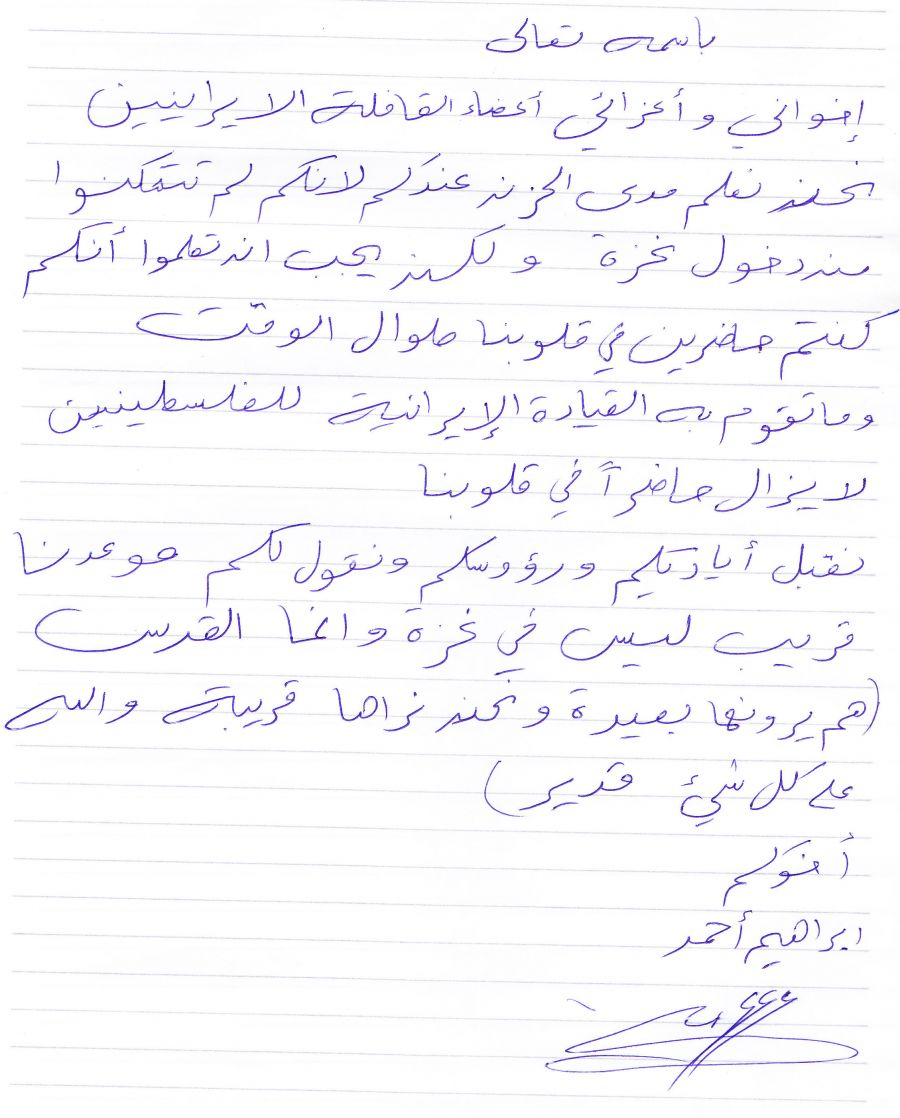 باسمه تعالى
إخواني وأعزائي أعضاء القافلة الايرانيين
نحن نعلم مدى الحزن عندكم لانكم لم تتمكنوا
من دخول غزة ولكن يجب ان تعلموا أنكم
كنتم حاضرين في قلوبنا طوال الوقت
وما تقوم به القيادة الإيرانية للفلسطينيين
لا يزال حاضراً في قلوبنا
نقبل أياديكم ورؤوسكم ونقول لكم موعدنا
قريب ليس في غزة وانما القدس
(هم يرونها بعيدة ونحن نراها قريبة والله
على كل شيئ قدير)
أخوكم
ابراهيم أحمد